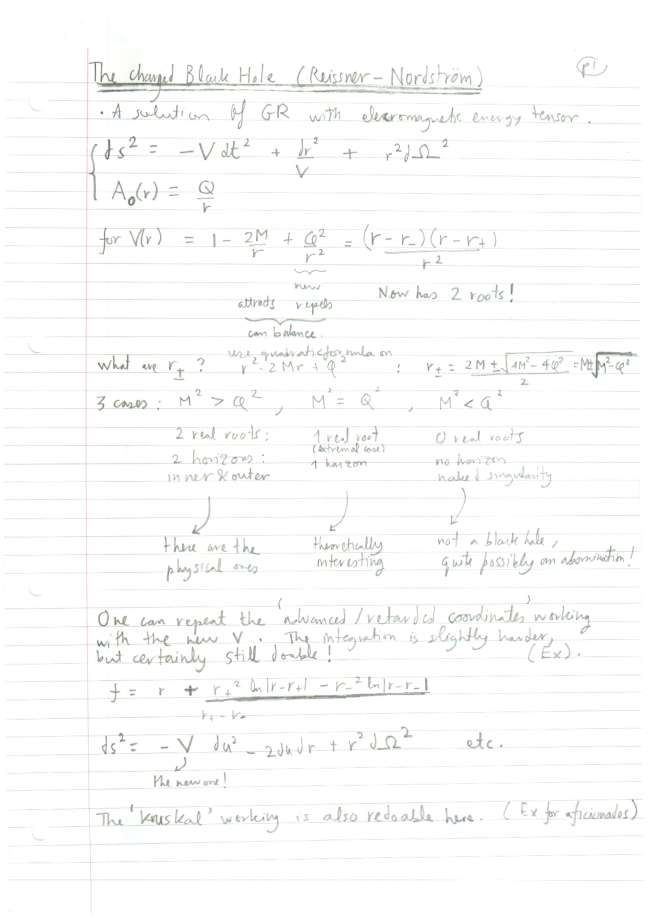 The Charged Black Hole (Reissner-Nordström) p1
· A solution of GR with electromagnetic energy tensor.
ds² = -V dt² + dr²/V + r²dΩ²
A₀(r) = Q/r
for V(r) = 1 - 2M/r + Q²/r² = (r-r₋)(r-r₊)/r²
new
attracts repels Now has 2 roots!
can balance.
use quadratic formula on
What are r± ? r²-2Mr+Q² : r± = (2M ± √(4M²-4Q²))/2 = M±√(M²-Q²)
3 cases : M² > Q² , M² = Q² , M² < Q²
2 real roots: 1 real root 0 real roots
2 horizons: (extremal case) no horizon
inner & outer 1 horizon naked singularity
there are the theoretically not a black hole,
physical ones interesting quite possibly an abomination!
One can repeat the 'advanced/retarded coordinates' working
with the new V. The integration is slightly harder,
but certainly still doable! (Ex).
f = r + (r₊² ln|r-r₊| - r₋² ln|r-r₋|)/(r₊-r₋)
ds² = -V du² - 2dudr + r²dΩ² etc.
the new one!
The 'Kruskal' working is also redoable here. (Ex for aficionados)